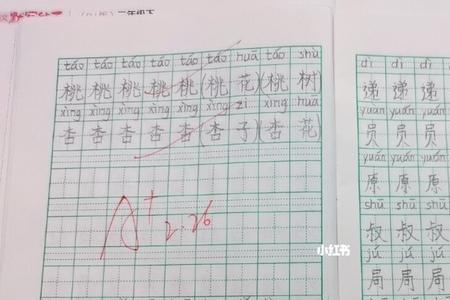 二年级下
táo táo táo táo táo táo huā táo shù
桃 桃 桃 桃 桃 (桃 花)(桃 树)
xìng xìng xìng xìng xìng xìng zi xìng huā
杏 杏 杏 杏 杏 (杏 子)(杏 花)
A+ 2.26
小红书
dì dì dì
递 递 递
yuán yuán yuán
员 员 员
yuán yuán yuán
原 原 原
shū shū shū
叔 叔 叔
jú jú jú
局 局 局